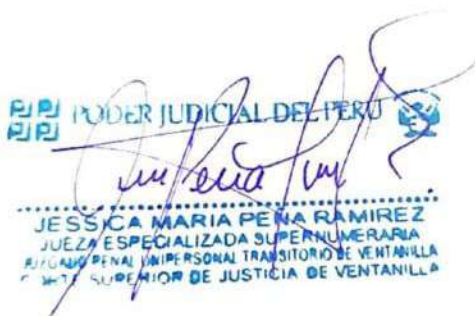 PJ PODER JUDICIAL DEL PERÚ
PJ
Peña
JESSICA MARIA PEÑA RAMIREZ
JUEZA ESPECIALIZADA SUPERNUMERARIA
JUZGADO PENAL UNIPERSONAL TRANSITORIO DE VENTANILLA
CORTE SUPERIOR DE JUSTICIA DE VENTANILLA